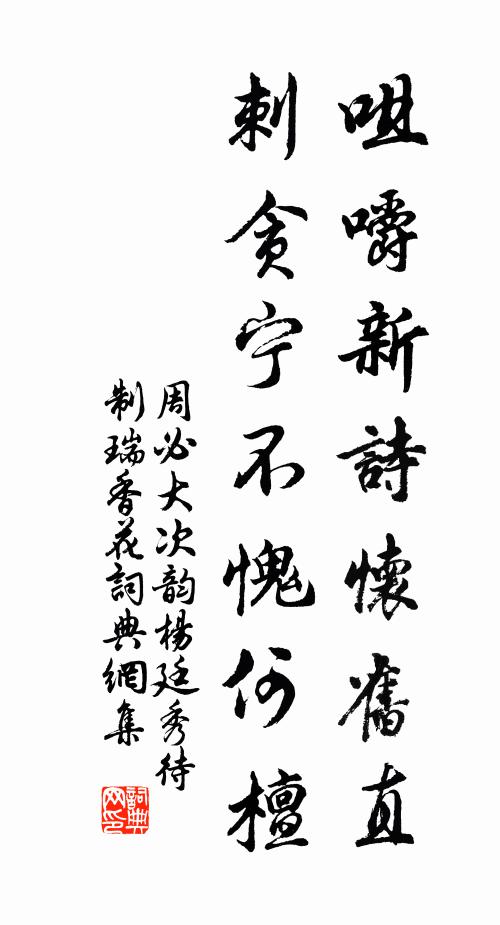 咀嚼新詩懷舊直
刺贪宁不愧何檀
周必大次韵楊廷秀待
制瑞香花詞典網集
詞典网印